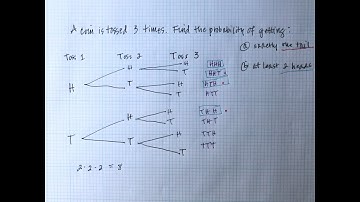 A coin is tossed 3 times. Find the probability of getting:
Toss 1 Toss 2 Toss 3
ⓐ exactly one tail
ⓑ at least 2 heads
H H H HHH
T HHT
T H HTH
T HTT
T H H THH
T THT
T H TTH
T TTT
2·2·2 = 8